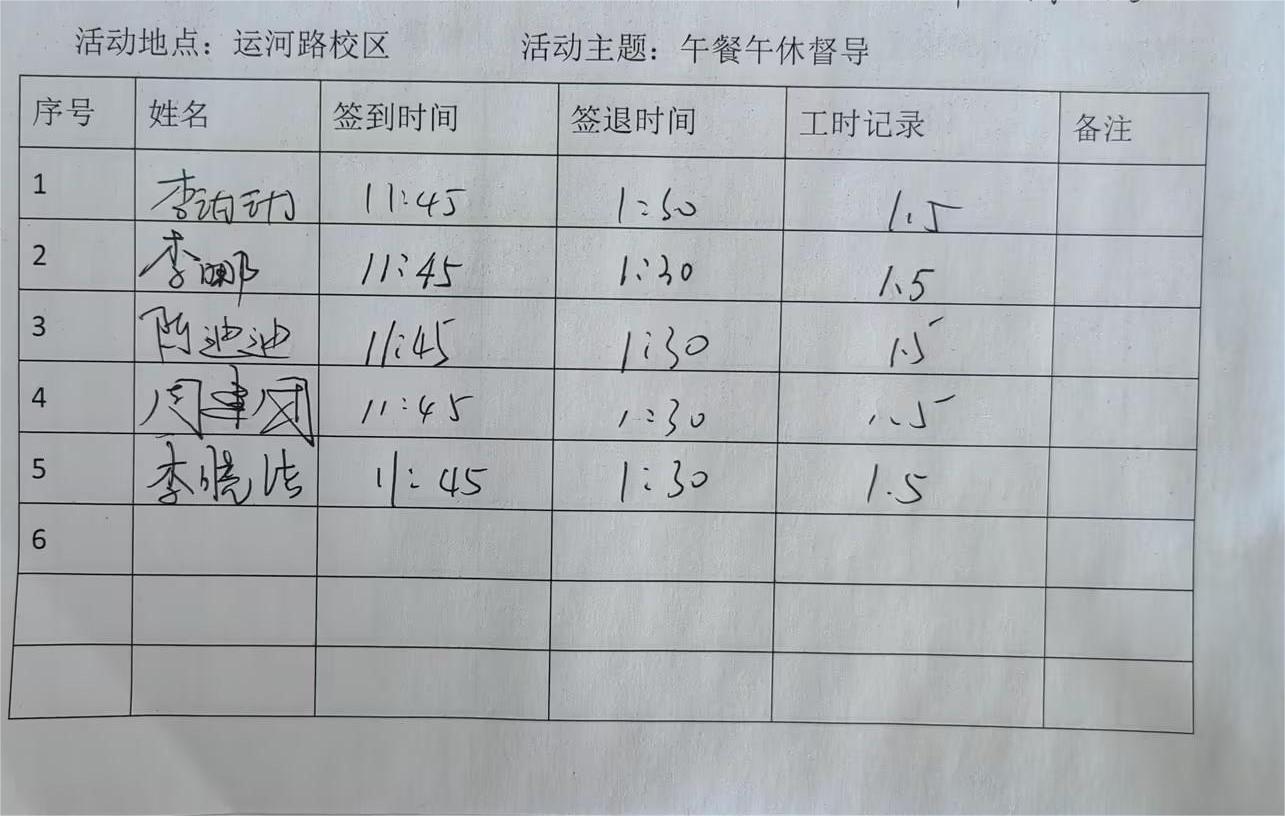 活动地点：运河路校区 活动主题：午餐午休督导
序号 姓名 签到时间 签退时间 工时记录 备注
1 李 11:45 1:30 1.5
2 李娜 11:45 1:30 1.5
3 陈迪迪 11:45 1:30 1.5
4 周建国 11:45 1:30 1.5
5 李晓洁 11:45 1:30 1.5
6